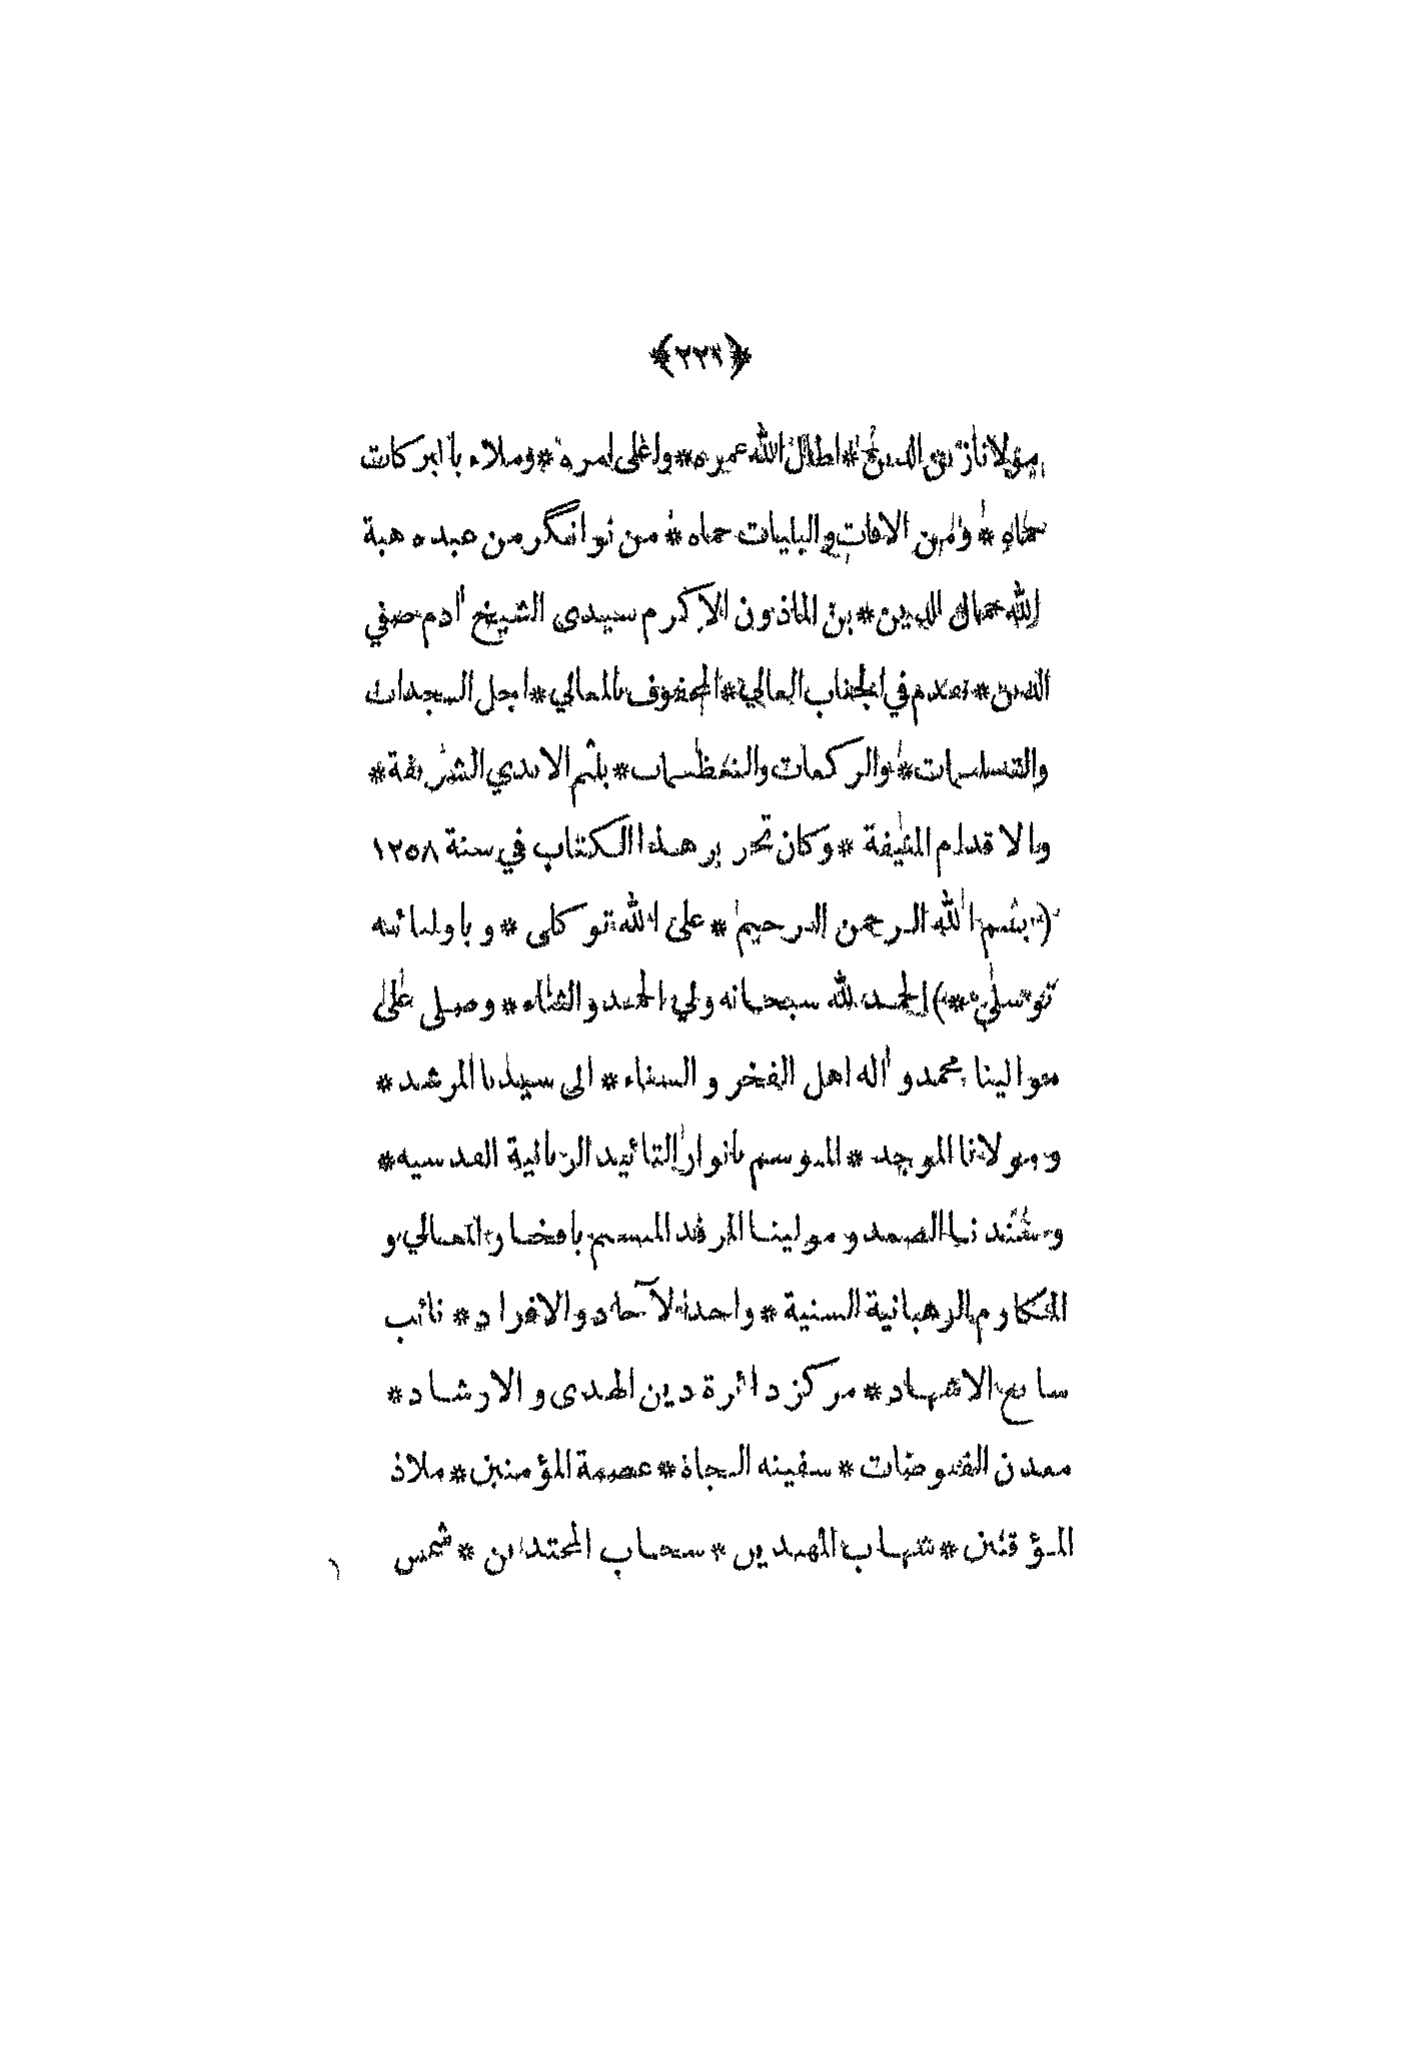 ﴿٢٢٩﴾
مولانا زين الدين * اطال الله عمره * واعلى امره * وملاء باالبركات
حماه * ومن الافات والبليات حماه * من نوانگر من عبده هبة
الله جمال الدين * بن الماذون الاكرم سيدى الشيخ آدم صفي
الدين * يقدم في الجناب العالي * المحفوف بالمعالي * اجل السجدات
والتسليمات * والركعات والتعظيمات * بلثم الايدي الشريفة *
وبالاقدام المنيفة * وكان تحرير هذا الكتاب في سنة ١٢٥٨
( بسم الله الرحمن الرحيم * على الله توكلى * وباوليائه
توسلي * ) الحمد لله سبحانه ولي الحمد والثناء * وصلى على
موالينا محمد وآله اهل الفخر والسناء * الى سيدنا المرشد *
ومولانا الموجد * الموسم بانوار التائيد الربانية القدسيه *
وسندنا الصمد ومولينا المرفد المسم بافخار المعالي و
المكارم الرهبانية السنية * واحد الآحاد والافراد * نائب
سابع الاشهاد * مركز دائرة دين الهدى والارشاد *
معدن الفيوضات * سفينه النجاة * عصمة المؤمنين * ملاذ
الموقنين * شهاب المهدين * سحاب المجتدين * شمس